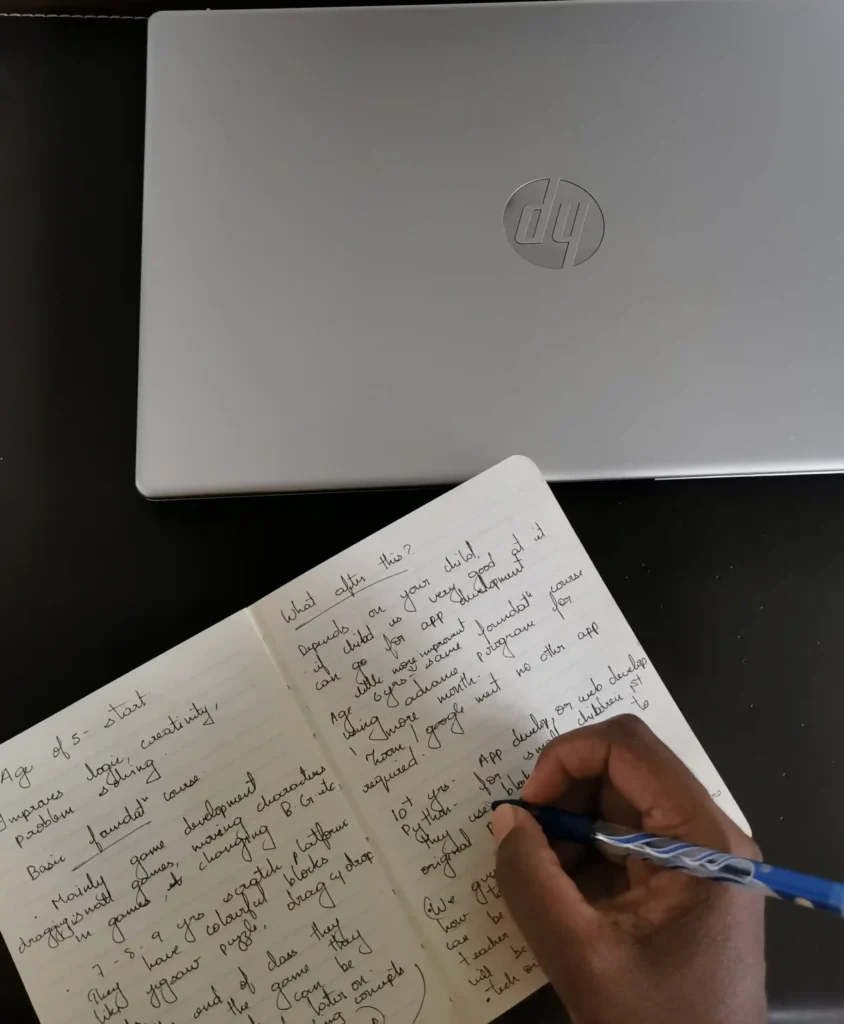 hp
Age of 5 - start
Improves logic, creativity,
problem solving.
Basic foundatⁿ course
. Mainly game development
dragging small games, moving characters
in games, changing B.G. etc.
. 7 - 8 - 9 yrs scratch platform
They have colourful blocks
like jigsaw puzzle, drag & drop
end of class they
the game they
can be
later on.
concepts
What after this?
Depends on your child,
if child is very good at it
can go for app development
little more improvement
Age 6 yrs - same foundatⁿ course
using advance program for
1 more month.
Zoom / google meet no other app
required.
10+ yrs. App develop or web develop
Python - for small children 1st
They use blo to
original
We gu
how to
can be
teacher
will be
. tech